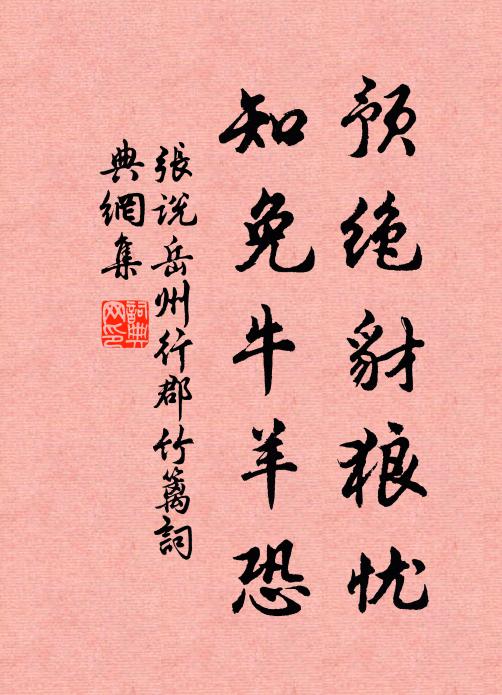 预绝豺狼忧
知免牛羊恐
張說岳州行郡竹篱詞
典網集
詞典网印